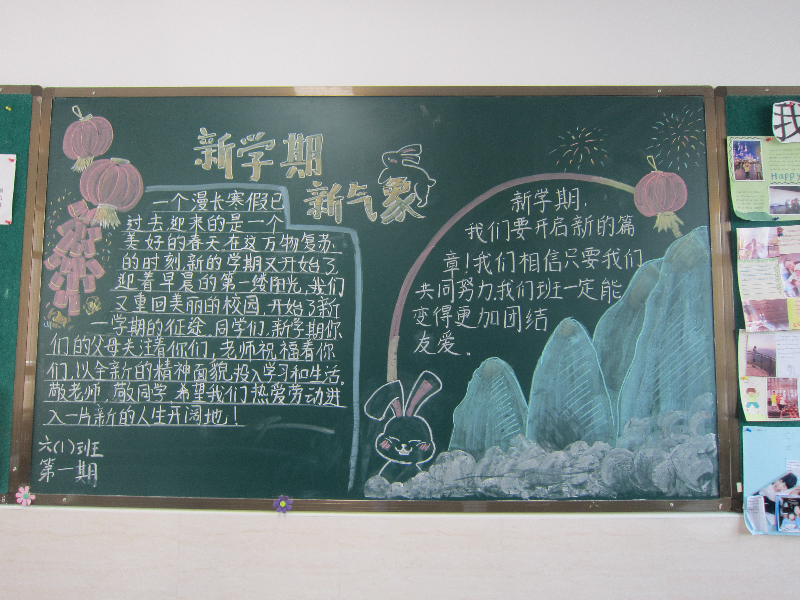 新学期
新气象
一个漫长寒假已
过去迎来的是一个
美好的春天在这万物复苏
的时刻,新的学期又开始了
迎着早晨的第一缕阳光,我们
又重回美丽的校园,开始了新
一学期的征途,同学们,新学期你
们的父母关注着你们,老师祝福着你
们,以全新的精神面貌投入学习和生活。
敬老师,敬同学,希望我们热爱劳动进
入一片新的人生开阔地!
六(1)班
第一期
新学期,
我们要开启新的篇
章!我们相信只要我们
共同努力,我们班一定能
变得更加团结
友爱。
我
Happy